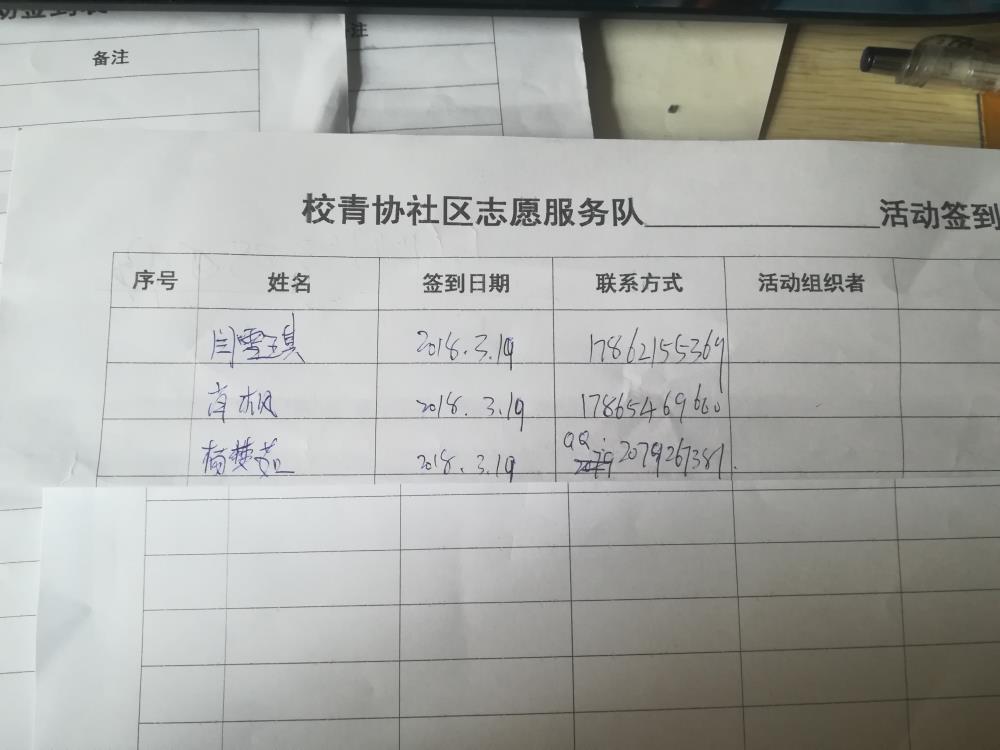 备注
注
校青协社区志愿服务队____________活动签到
序号 姓名 签到日期 联系方式 活动组织者
闫雪琪 2018.3.19 17862155369
2018.3.19 17865469660
杨梦 2018.3.19 QQ: 2079267381.